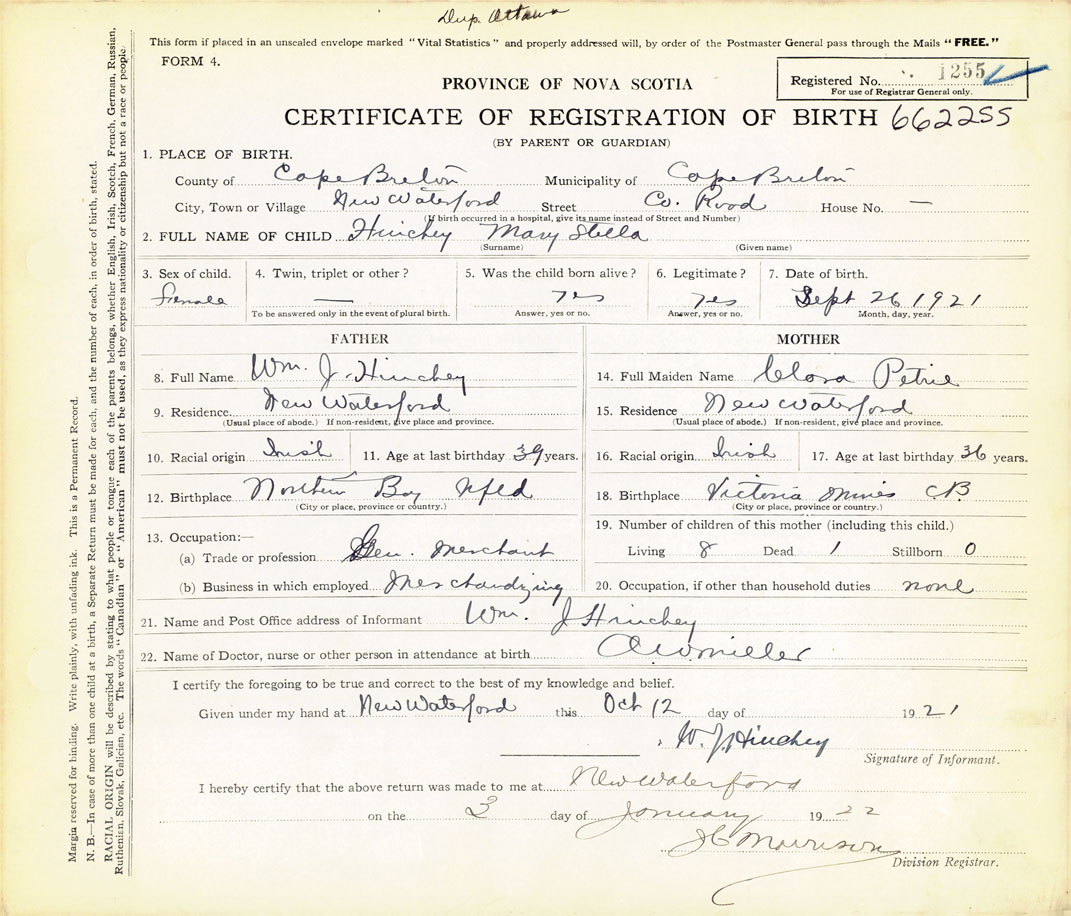 Dup. Ottawa
This form if placed in an unsealed envelope marked "Vital Statistics" and properly addressed will, by order of the Postmaster General pass through the Mails "FREE."
FORM 4.
Registered No. 1255
For use of Registrar General only.
PROVINCE OF NOVA SCOTIA
CERTIFICATE OF REGISTRATION OF BIRTH 662255
(BY PARENT OR GUARDIAN)
1. PLACE OF BIRTH.
County of Cape Breton Municipality of Cape Breton
City, Town or Village New Waterford Street Co. Road House No. —
(If birth occurred in a hospital, give its name instead of Street and Number)
2. FULL NAME OF CHILD Hinchey Mary Stella
(Surname) (Given name)
3. Sex of child. 4. Twin, triplet or other? 5. Was the child born alive? 6. Legitimate? 7. Date of birth.
Female — yes yes Sept 26 1921
To be answered only in the event of plural birth. Answer, yes or no. Answer, yes or no. Month, day, year.
FATHER MOTHER
8. Full Name Wm. J. Hinchey 14. Full Maiden Name Clora Petrie
9. Residence. New Waterford 15. Residence New Waterford
(Usual place of abode.) If non-resident, give place and province. (Usual place of abode.) If non-resident, give place and province.
10. Racial origin Irish 11. Age at last birthday 39 years. 16. Racial origin Irish 17. Age at last birthday 36 years.
12. Birthplace Northern Bay Nfld 18. Birthplace Victoria Mines CB
(City or place, province or country.) (City or place, province or country.)
13. Occupation:— 19. Number of children of this mother (including this child.)
(a) Trade or profession Gen. Merchant Living 8 Dead 1 Stillborn 0
(b) Business in which employed Merchandizing 20. Occupation, if other than household duties none
21. Name and Post Office address of Informant Wm. J Hinchey
22. Name of Doctor, nurse or other person in attendance at birth Miller
I certify the foregoing to be true and correct to the best of my knowledge and belief.
Given under my hand at New Waterford this Oct 12 day of 1921
W. J. Hinchey
Signature of Informant.
I hereby certify that the above return was made to me at New Waterford
on the 3 day of January 1922
Morrison
Division Registrar.
Margin reserved for binding. Write plainly, with unfading ink. This is a Permanent Record.
N. B.—In case of more than one child at a birth, a Separate Return must be made for each, and the number of each, in order of birth, stated.
RACIAL ORIGIN will be described by stating to what people or tongue each of the parents belongs, whether English, Irish, Scotch, French, German, Russian,
Ruthenian, Slovak, Galician, etc. The words "Canadian" or "American" must not be used, as they express nationality or citizenship but not a race or people.